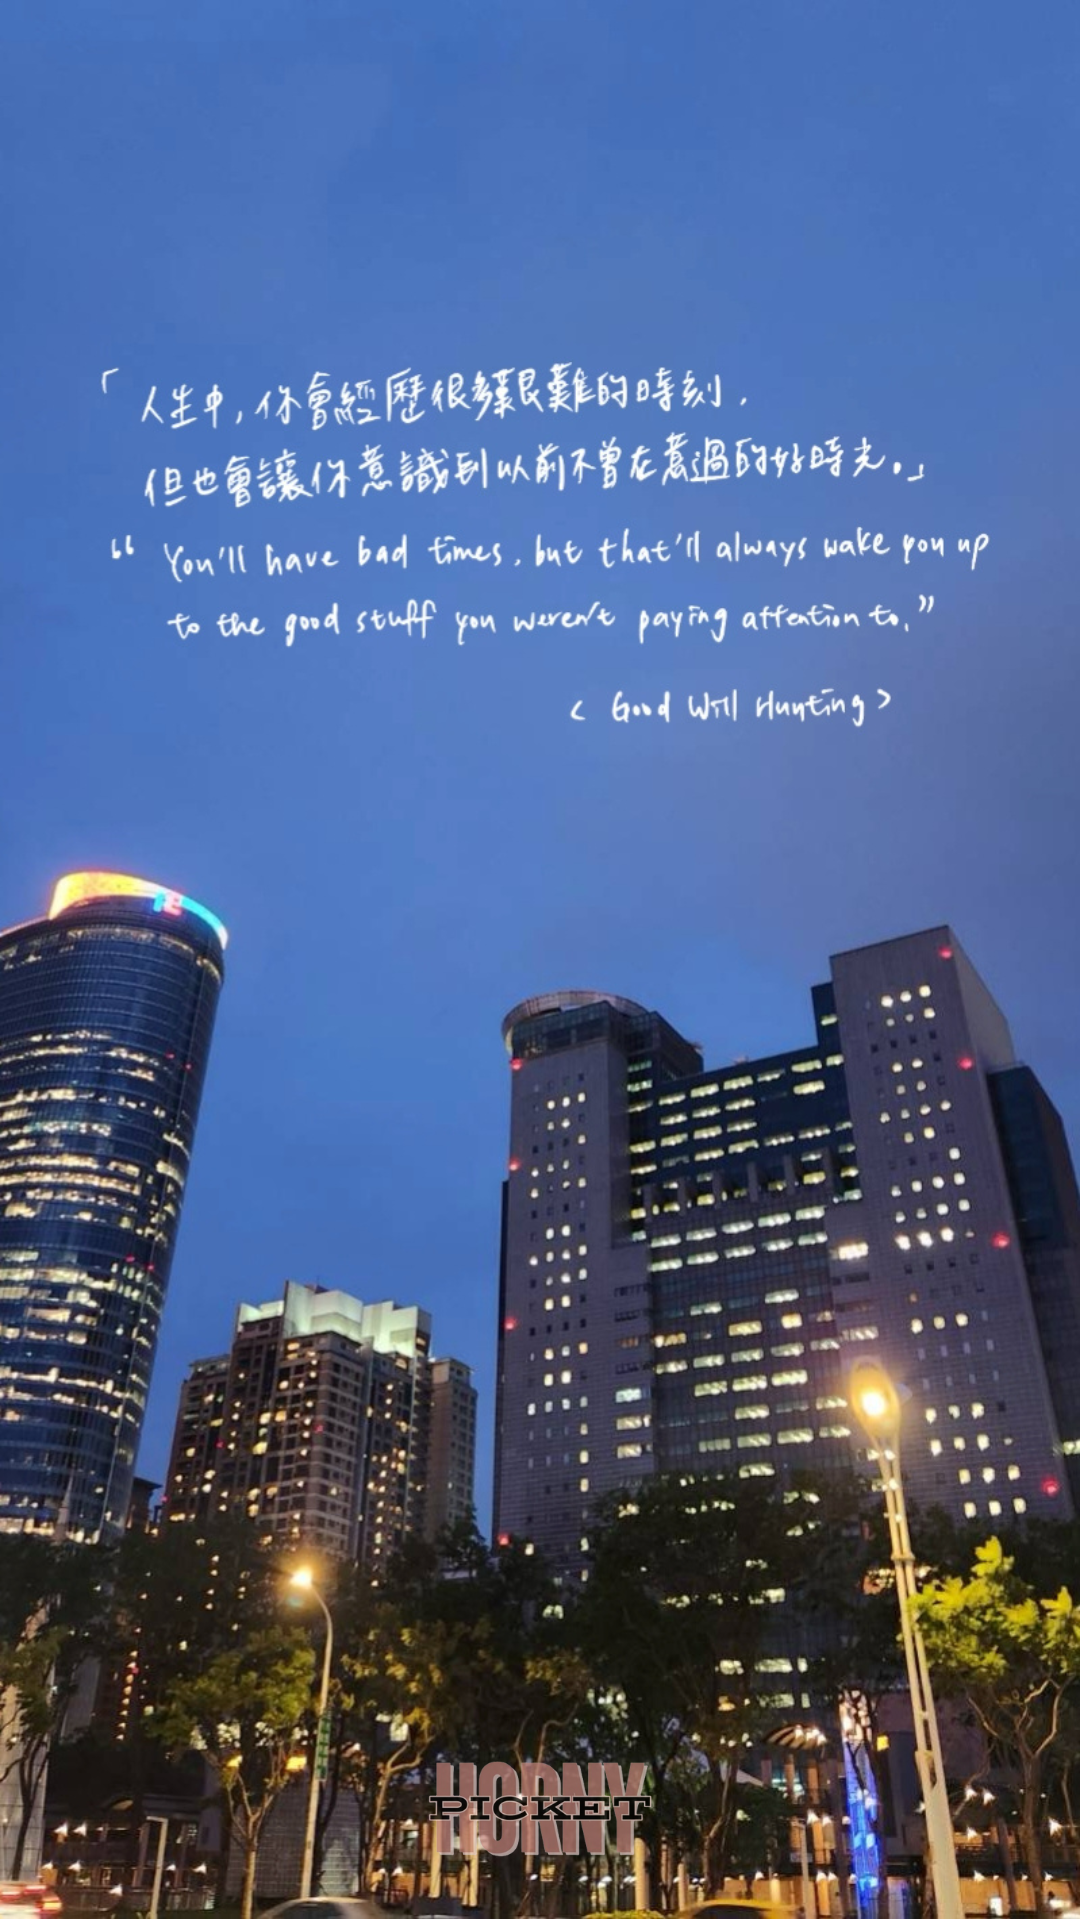 「人生中，你會經歷很多艱難的時刻，
但也會讓你意識到以前不曾在意過的好時光。」
“You'll have bad times, but that'll always wake you up
to the good stuff you weren't paying attention to.”
< Good Will Hunting >
HORNY
PICKET
HORNY